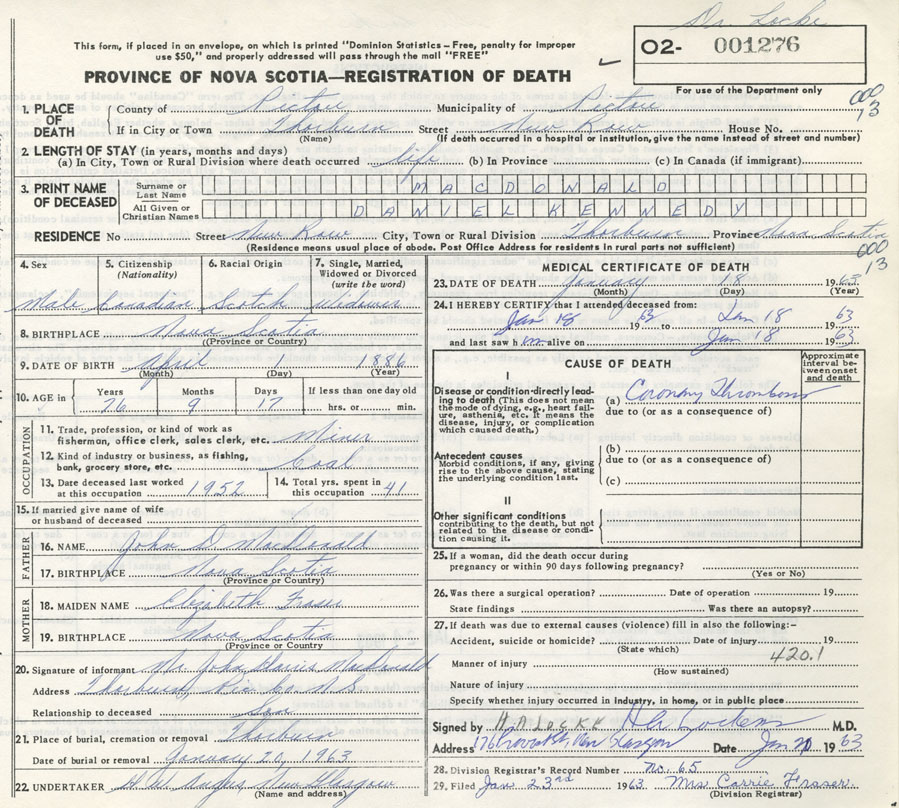 Dr. Locke
This form, if placed in an envelope, on which is printed "Dominion Statistics – Free, penalty for improper
use $50," and properly addressed will pass through the mail "FREE"
O2- 001276
PROVINCE OF NOVA SCOTIA—REGISTRATION OF DEATH
For use of the Department only
000
13
1. PLACE OF DEATH
County of Pictou Municipality of Pictou
If in City or Town Thorburn Street New Row House No.
(Name) (If death occurred in a hospital or institution, give the name instead of street and number)
2. LENGTH OF STAY (in years, months and days)
(a) In City, Town or Rural Division where death occurred life (b) In Province (c) In Canada (if immigrant)
3. PRINT NAME OF DECEASED
Surname or Last Name MACDONALD
All Given or Christian Names DANIEL KENNEDY
RESIDENCE No Street New Row City, Town or Rural Division Thorburn Province Nova Scotia
(Residence means usual place of abode. Post Office Address for residents in rural parts not sufficient)
000
13
4. Sex 5. Citizenship (Nationality) 6. Racial Origin 7. Single, Married, Widowed or Divorced (write the word)
Male Canadian Scotch Widower
8. BIRTHPLACE Nova Scotia
(Province or Country)
9. DATE OF BIRTH April 1 1886
(Month) (Day) (Year)
10. AGE in Years Months Days If less than one day old
76 9 17 hrs. or min.
OCCUPATION
11. Trade, profession, or kind of work as
fisherman, office clerk, sales clerk, etc. Miner
12. Kind of industry or business, as fishing,
bank, grocery store, etc. Coal
13. Date deceased last worked at this occupation 1952 14. Total yrs. spent in this occupation 41
15. If married give name of wife
or husband of deceased
FATHER
16. NAME John D MacDonald
17. BIRTHPLACE Nova Scotia
(Province or Country)
MOTHER
18. MAIDEN NAME Elizabeth Fraser
19. BIRTHPLACE Nova Scotia
(Province or Country)
20. Signature of informant Mr. John Harris MacDonald
Address Thorburn, Pic. Co. N.S.
Relationship to deceased Son
21. Place of burial, cremation or removal Thorburn
Date of burial or removal January 20, 1963
22. UNDERTAKER New Glasgow
(Name and address)
MEDICAL CERTIFICATE OF DEATH
23. DATE OF DEATH January 18 1963
(Month) (Day) (Year)
24. I HEREBY CERTIFY that I attended deceased from:
Jan 18 1963 to Jan 18 1963
and last saw him alive on Jan 18 1963
CAUSE OF DEATH
Approximate interval between onset and death
I
Disease or condition directly leading to death (This does not mean the mode of dying, e.g., heart failure, asthenia, etc. It means the disease, injury, or complication which caused death.)
(a) Coronary Thrombosis
due to (or as a consequence of)
Antecedent causes
Morbid conditions, if any, giving rise to the above cause, stating the underlying condition last.
(b)
due to (or as a consequence of)
(c)
II
Other significant conditions
contributing to the death, but not related to the disease or condition causing it.
25. If a woman, did the death occur during
pregnancy or within 90 days following pregnancy?
(Yes or No)
26. Was there a surgical operation? Date of operation 19
State findings Was there an autopsy?
27. If death was due to external causes (violence) fill in also the following:–
Accident, suicide or homicide? Date of injury 19
(State which)
420.1
Manner of injury
(How sustained)
Nature of injury
Specify whether injury occurred in industry, in home, or in public place
Signed by H.A LOCKE M.D.
Address 176 Provost St, New Glasgow Date Jan 20 1963
28. Division Registrar's Record Number no. 65
29. Filed Jan. 23rd 1963 Mrs Carrie Fraser
(Division Registrar)